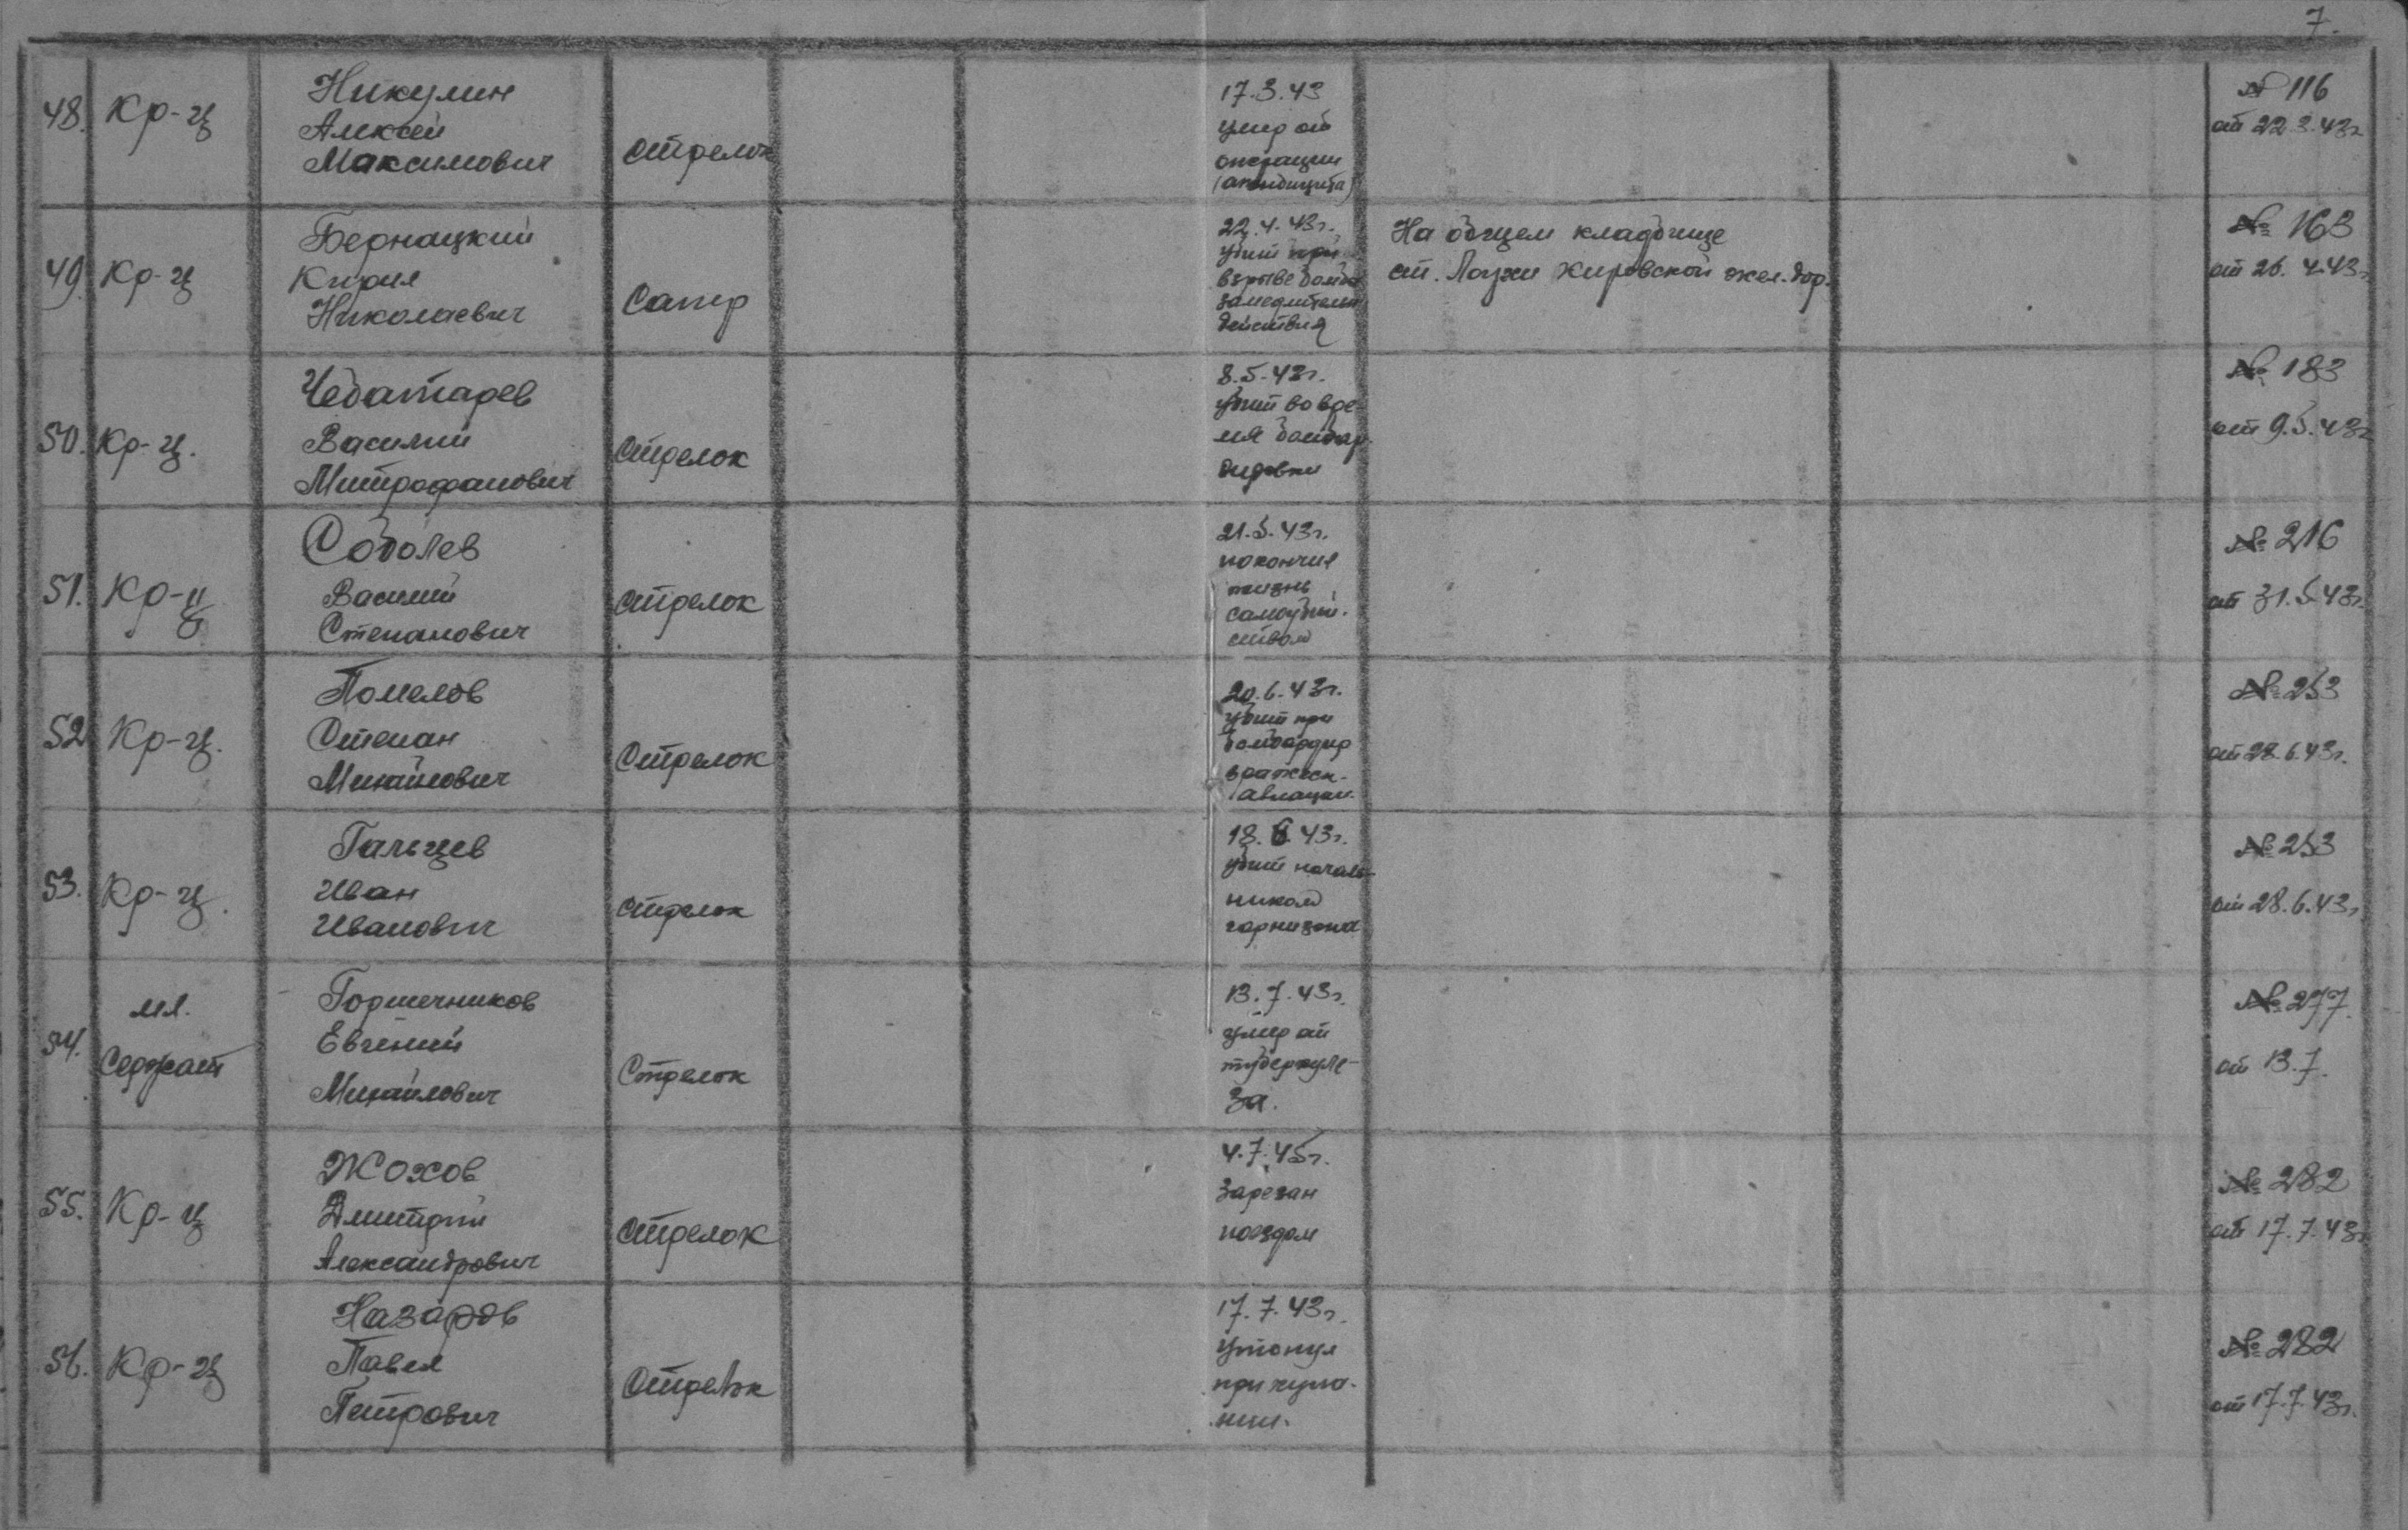 7.
48. Кр-ц
Никулин
Алексей
Максимович
стрелок
17.3.43
умер от
операции
(апендицита)
№ 116
от 22.3.43г
49. Кр-ц
Бернацкий
Кирил
Николаевич
Сапер
22.4.43г.
убит при
взрыве бомбы
замедлительн
действия
На общем кладбище
ст. Лоухи Кировской жел.дор.
№ 163
от 26.4.43г.
50. Кр-ц.
Чеботарев
Василий
Митрофанович
Стрелок
8.5.43г.
убит во вре-
мя бомбар-
дировки
№ 183
от 9.5.43г
51. Кр-ц
Соболев
Василий
Степанович
стрелок
21.5.43г.
покончил
жизнь
самоубий-
ством
№ 216
от 31.5.43г.
52 Кр-ц.
Помелов
Степан
Михайлович
Стрелок
20.6.43г.
убит при
бомбардир
вражеск.
авиации.
№ 253
от 28.6.43г.
53. Кр-ц.
Гальцев
Иван
Иванович
стрелок
18.6.43г.
убит началь-
ником
гарнизона
№ 253
от 28.6.43г
54. мл.
Сержант
Горшечников
Евгений
Михайлович
Стрелок
13.7.43г.
умер от
туберкуле-
за.
№ 277.
от 13.7.
55. Кр-ц
Жохов
Дмитрий
Александрович
стрелок
4.7.45г.
Зарезан
поездом
№ 282
от 17.7.43г
56. Кр-ц
Назаров
Павел
Петрович
Стрелок
17.7.43г.
утонул
при купа-
нии.
№ 282
от 17.7.43г.